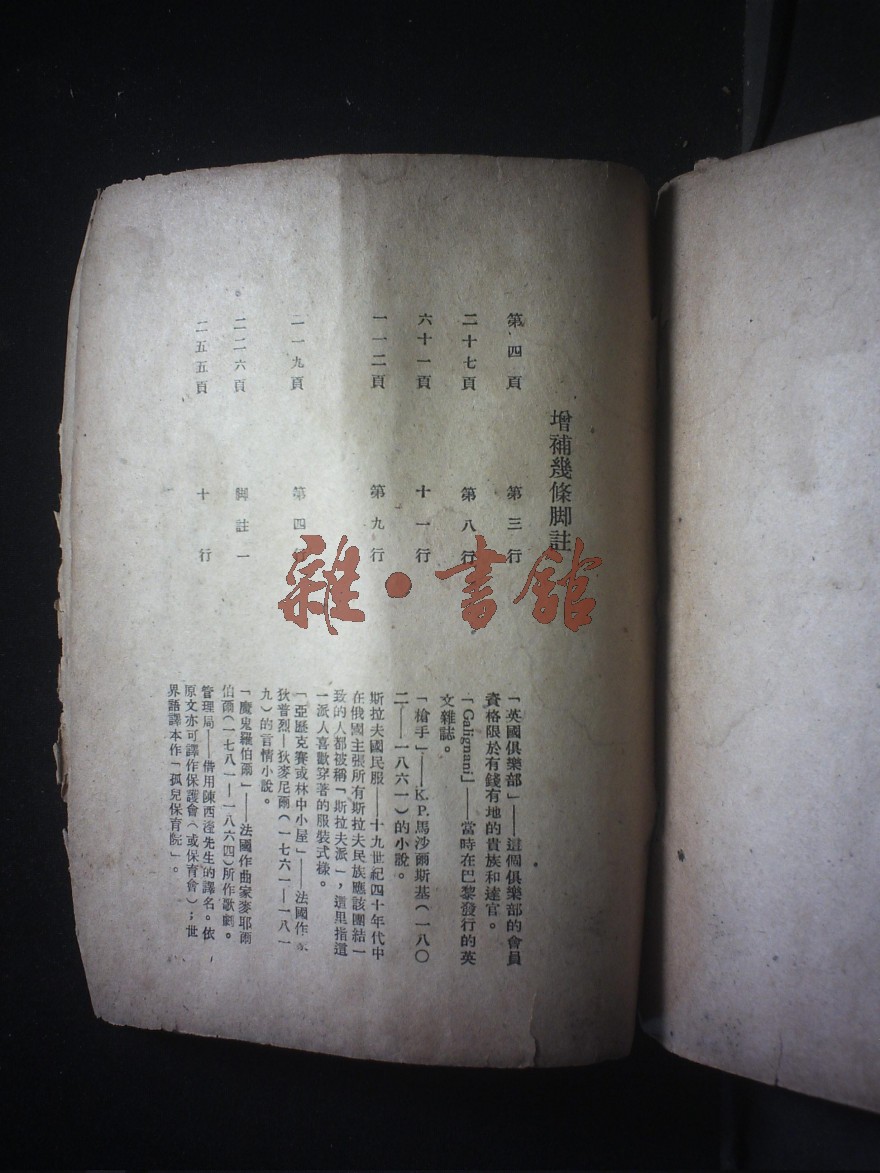 增補幾條脚註
第四頁 第三行 「英國俱樂部」——這個俱樂部的會員
資格限於有錢有地的貴族和達官。
二十七頁 第八行 「Galignani」——當時在巴黎發行的英
文雜誌。
六十一頁 十一行 「槍手」——K.P.馬沙爾斯基(一八〇
二——一八六一)的小說。
一一二頁 第九行 斯拉夫國民服——十九世紀四十年代中
在俄國主張所有斯拉夫民族應該團結一
致的人都被稱「斯拉夫派」,這里指這
一派人喜歡穿著的服裝式樣。
一一九頁 第四行 「亞歷克賽或林中小屋」——法國作
狄普烈—狄麥尼爾(一七六一—一八一
九)的言情小說。
二二六頁 脚註一 「魔鬼羅伯爾」——法國作曲家麥耶爾
伯爾(一七八一—一八六四)所作歌劇。
二五五頁 十行 管理局——借用陳西瀅先生的譯名。依
原文亦可譯作保護會(或保育會);世
界語譯本作「孤兒保育院」。
雜·書館